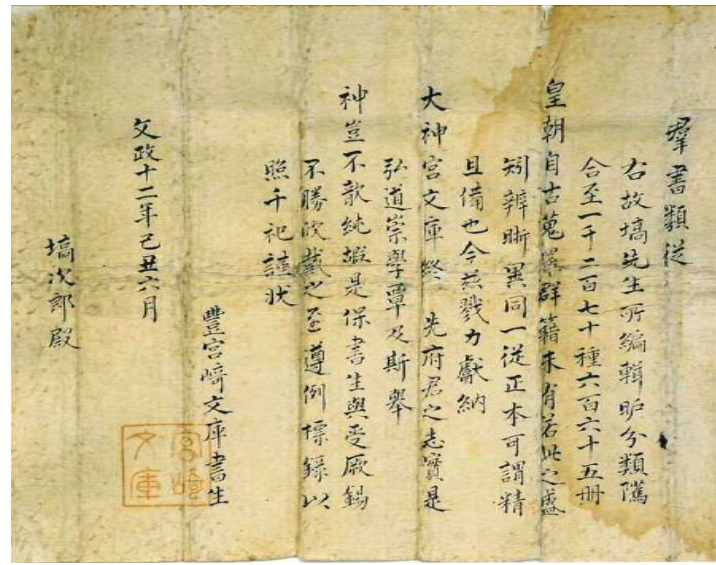 羣書類従
右故塙先生所編輯昈分類隲
合至一千二百七十種六百六十五冊
皇朝自古蒐集群籍未有若此之盛
矧辨晰異同一從正本可謂精
且備也今茲戮力獻納
大神宮文庫終 先府君之志實是
弘道崇學覃及斯舉
神豈不歆純嘏是保書生與受厥錫
不勝欣戴之至遵例標錄以
照千祀謹状
豐宮崎文庫書生
文政十二年己丑六月
塙次郎殿
宮崎
文庫